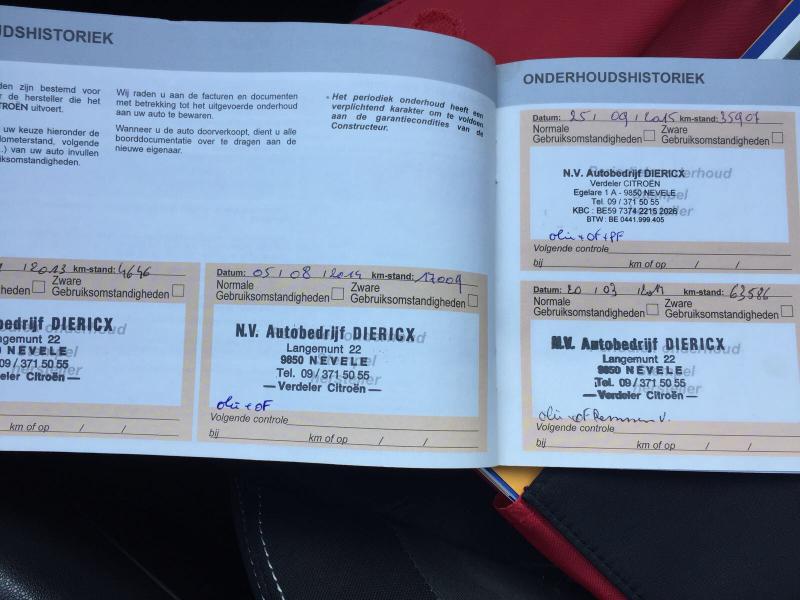 DSHISTORIEK
den zijn bestemd voor
r de hersteller die het
ROËN uitvoert.
uw keuze hieronder de
lometerstand, volgende
..) van uw auto invullen
iksomstandigheden.
Wij raden u aan de facturen en documenten
met betrekking tot het uitgevoerde onderhoud
aan uw auto te bewaren.
Wanneer u de auto doorverkoopt, dient u alle
boorddocumentatie over te dragen aan de
nieuwe eigenaar.
- Het periodiek onderhoud heeft een
verplichtend karakter om te voldoen
aan de garantiecondities van de
Constructeur.
/2013 km-stand: 4646
Zware
iksomstandigheden Gebruiksomstandigheden
bedrijf DIERICX
Langemunt 22
50 NEVELE
09 / 371 50 55
eler Citroën —
km of op / /
Datum: 05 / 08 / 2014 km-stand: 17009
Normale Zware
Gebruiksomstandigheden Gebruiksomstandigheden
N.V. Autobedrijf DIERICX
Langemunt 22
9850 NEVELE
Tel. 09 / 371 50 55
— Verdeler Citroën —
olie + OF
Volgende controle
bij km of op / /
ONDERHOUDSHISTORIEK
Datum: 25 / 09 / 2015 km-stand: 35907
Normale Zware
Gebruiksomstandigheden Gebruiksomstandigheden
N.V. Autobedrijf DIERICX
Verdeler CITROËN
Egelare 1 A - 9850 NEVELE
Tel. 09 / 371 50 55
KBC : BE59 7374 2215 2026
BTW : BE 0441.999.405
olie + OF + PF
Volgende controle
bij km of op / /
Datum: 20 / 03 / 2017 km-stand: 63586
Normale Zware
Gebruiksomstandigheden Gebruiksomstandigheden
N.V. Autobedrijf DIERICX
Langemunt 22
9850 NEVELE
Tel. 09 / 371 50 55
— Verdeler Citroën —
olie + OF Remmen V.
Volgende controle
bij km of op / /